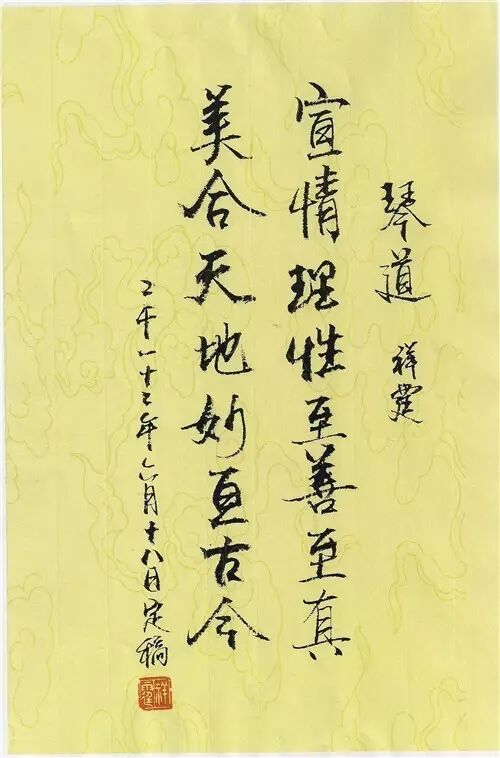 琴道 祥霆
宣情理性至善至真
美合天地妙亘古今
二千十二年六月十八日定稿
祥霆